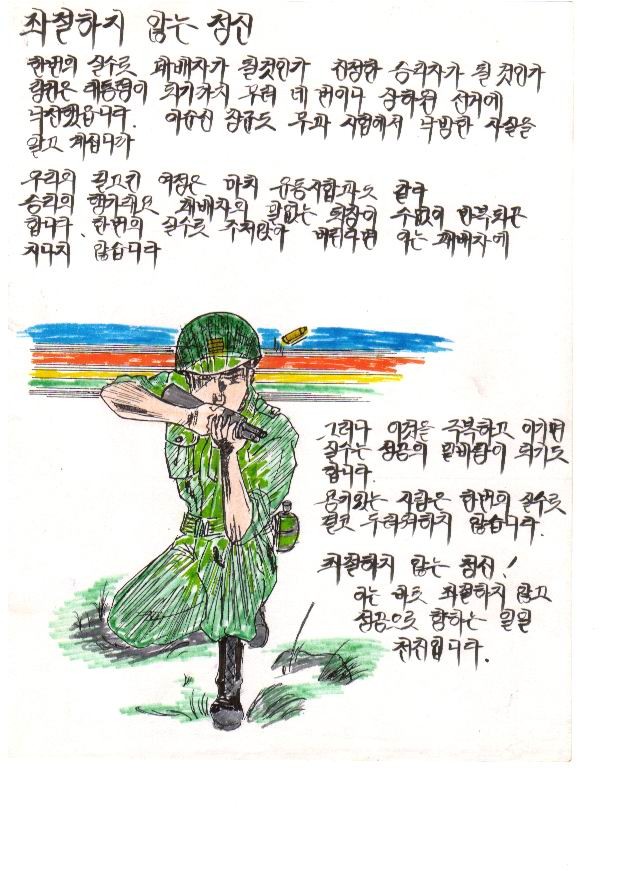 좌절하지 않는 정신
한번의 실수로 패배자가 될것인가 진정한 승리자가 될 것인가
링컨은 대통령이 되기까지 무려 네 번이나 상하원 선거에
낙선했습니다. 이순신 장군도 무과 시험에서 낙방한 사실을
알고 계십니까
우리의 길고긴 여정은 마치 운동시합과도 같다
승리의 행가래요 패배자의 말없는 퇴장이 수없이 반복되곤
합니다. 한번의 실수로 주저앉아 버린다면 이는 패배자에
지나지 않습니다
그러나 이것을 극복하고 이기면
실수는 성공의 밑바탕이 되기도
합니다.
용기있는 사람은 한번의 실수로
결코 두려워하지 않습니다.
좌절하지 않는 정신!
이는 바로 좌절하지 않고
성공으로 향하는 일일
전진입니다.